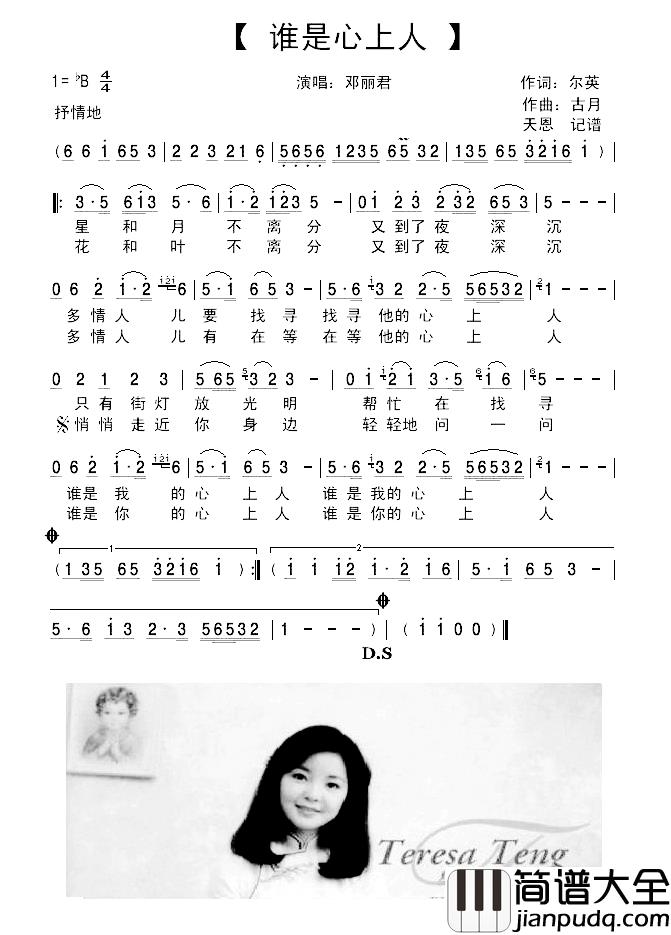 【 谁是心上人 】
1= ♭B 4/4 演唱：邓丽君 作词：尔英
作曲：古月
抒情地
天恩 记谱
( 6 6 i 65 3 | 2 2 3 21 6 | 5656 1235 65 32 | 135 65 3216 i ) |
||: 3·5 6i3 5·6 | i·2 i23 5 - | 0i 23 232 653 | 5 - - - |
星 和 月 不 离 分 又 到了 夜 深 沉
花 和 叶 不 离 分 又 到了 夜 深 沉
0 6 2 i·2 i2i 6 | 5·i 6 5 3 - | 5·6 i 3 2 2·5 56532 | 2 1 - - - |
多 情 人 儿 要 找 寻 找 寻 他的 心 上 人
多 情 人 儿 有 在 等 在 等 他的 心 上 人
0 2 1 2 3 | 5 65 5 3 2 3 - | 0i i 2i 3·5 6 i6 | 6 5 - - - |
只 有 街 灯 放 光 明 帮 忙 在 找 寻
悄 悄 走 近 你 身 边 轻 轻地 问 一 问
0 6 2 i·2 i2i 6 | 5·i 65 3 - | 5·6 i 3 2 2·5 56532 | 2 1 - - - |
谁是 我 的 心 上 人 谁 是 我的 心 上 人
谁是 你 的 心 上 人 谁 是 你的 心 上 人
1 2
( 135 65 3216 i ) :|| ( i i i2 i·2 i6 | 5·i 65 3 - |
5·6 i3 2·3 56532 | 1 - - - ) | ( i i 0 0 ) ||
D.S
Teresa Teng
简谱大全
jianpudq.com